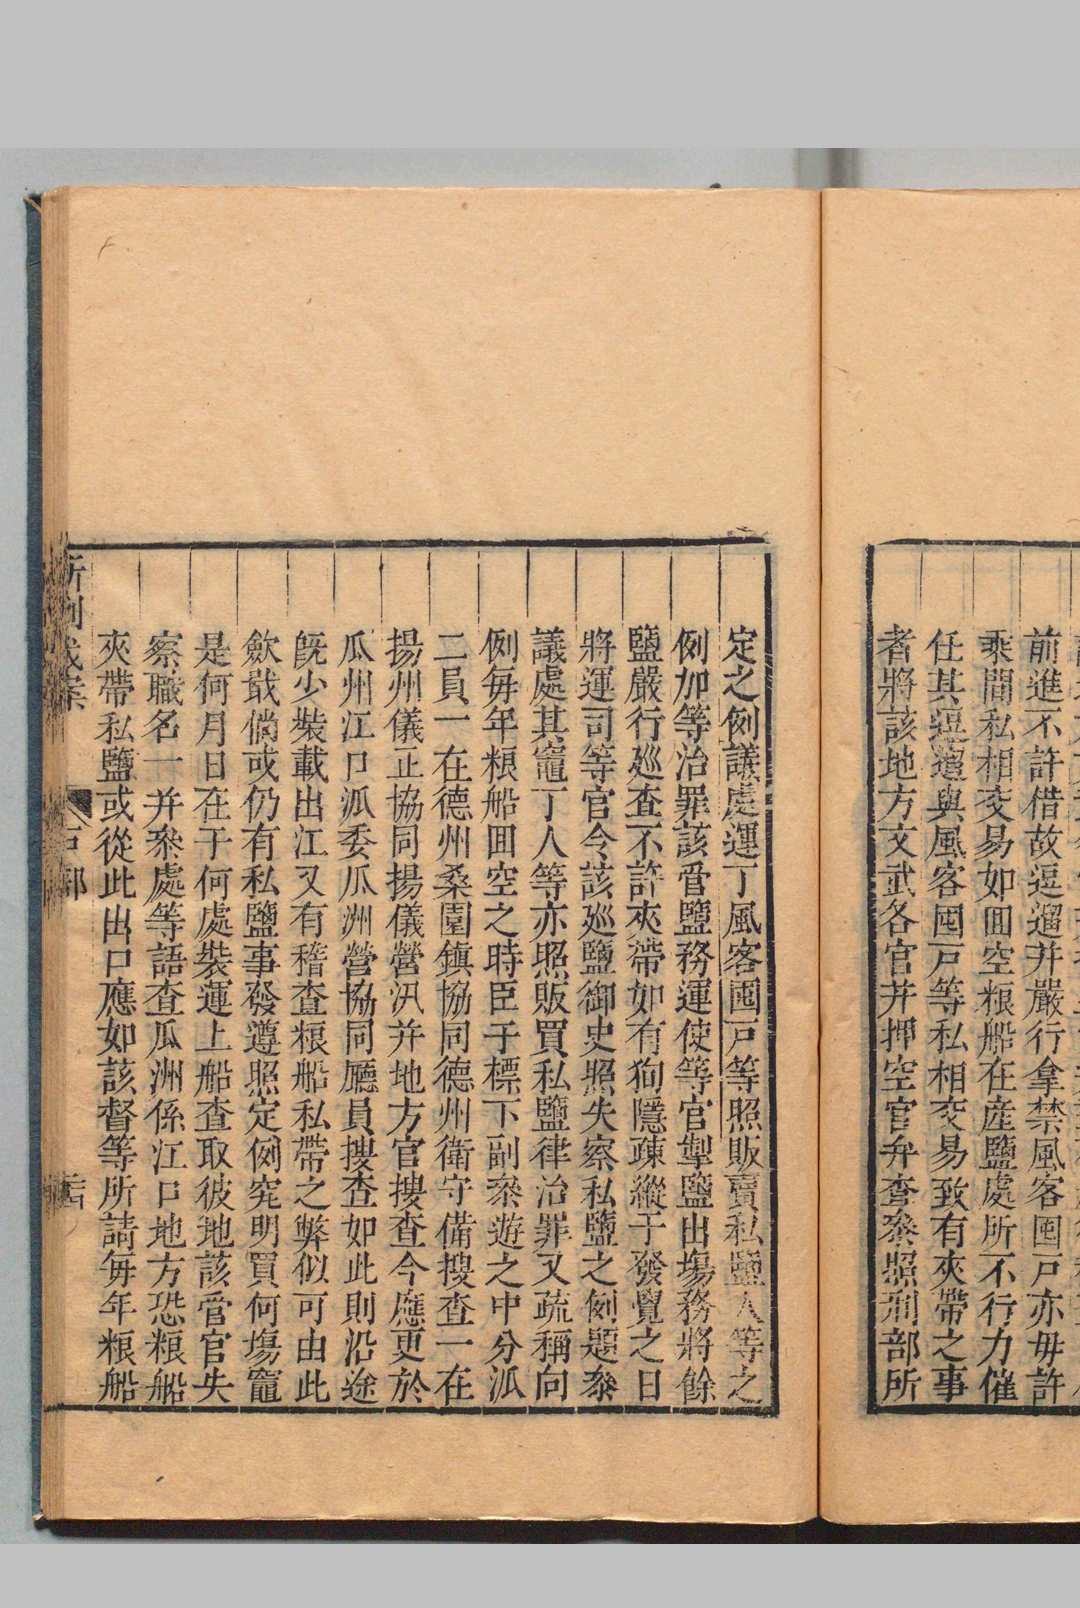 前進不許借故逗遛并嚴行拿禁風客囤戶亦毋許
乘間私相交易如囬空粮船在産鹽處所不行力催
任其逗遛與風客囤戶等私相交易致有夾帶之事
者將該地方文武各官并押空官弁查叅照刑部所
定之例議處運丁風客囤戶等照販賣私鹽人等之
例加等治罪該管鹽務運使等官掣鹽出塲務將餘
鹽嚴行廵查不許夾帶如有狥隱疎縱于發覺之日
將運司等官令該廵鹽御史照失察私鹽之例題叅
議處其竈丁人等亦照販買私鹽律治罪又疏稱向
例每年粮船囬空之時臣于標下副叅遊之中分派
二員一在德州桑園鎮協同德州衛守備搜查一在
揚州儀正協同揚儀營汛并地方官搜查今應更於
瓜州江口派委瓜洲營協同廳員搜查如此則沿途
旣少裝載出江又有稽查粮船私帶之弊似可由此
歛戢倘或仍有私鹽事發遵照定例究明買何塲竈
是何月日在于何處裝運上船查取彼地該管官失
察職名一并叅處等語查瓜洲係江口地方恐粮船
夾帶私鹽或從此出口應如該督等所請每年粮船
戶部